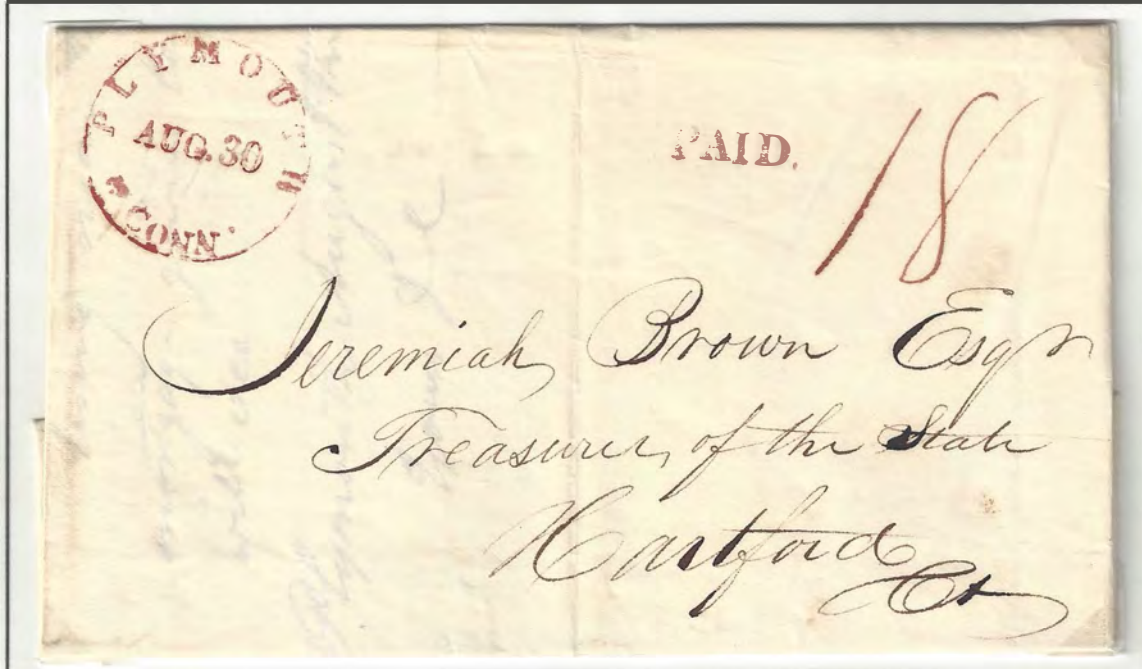 PLYMOUTH
AUG. 30
CONN.
PAID.
18
Jeremiah Brown Esqr
Treasurer of the State
Hartford
Ct